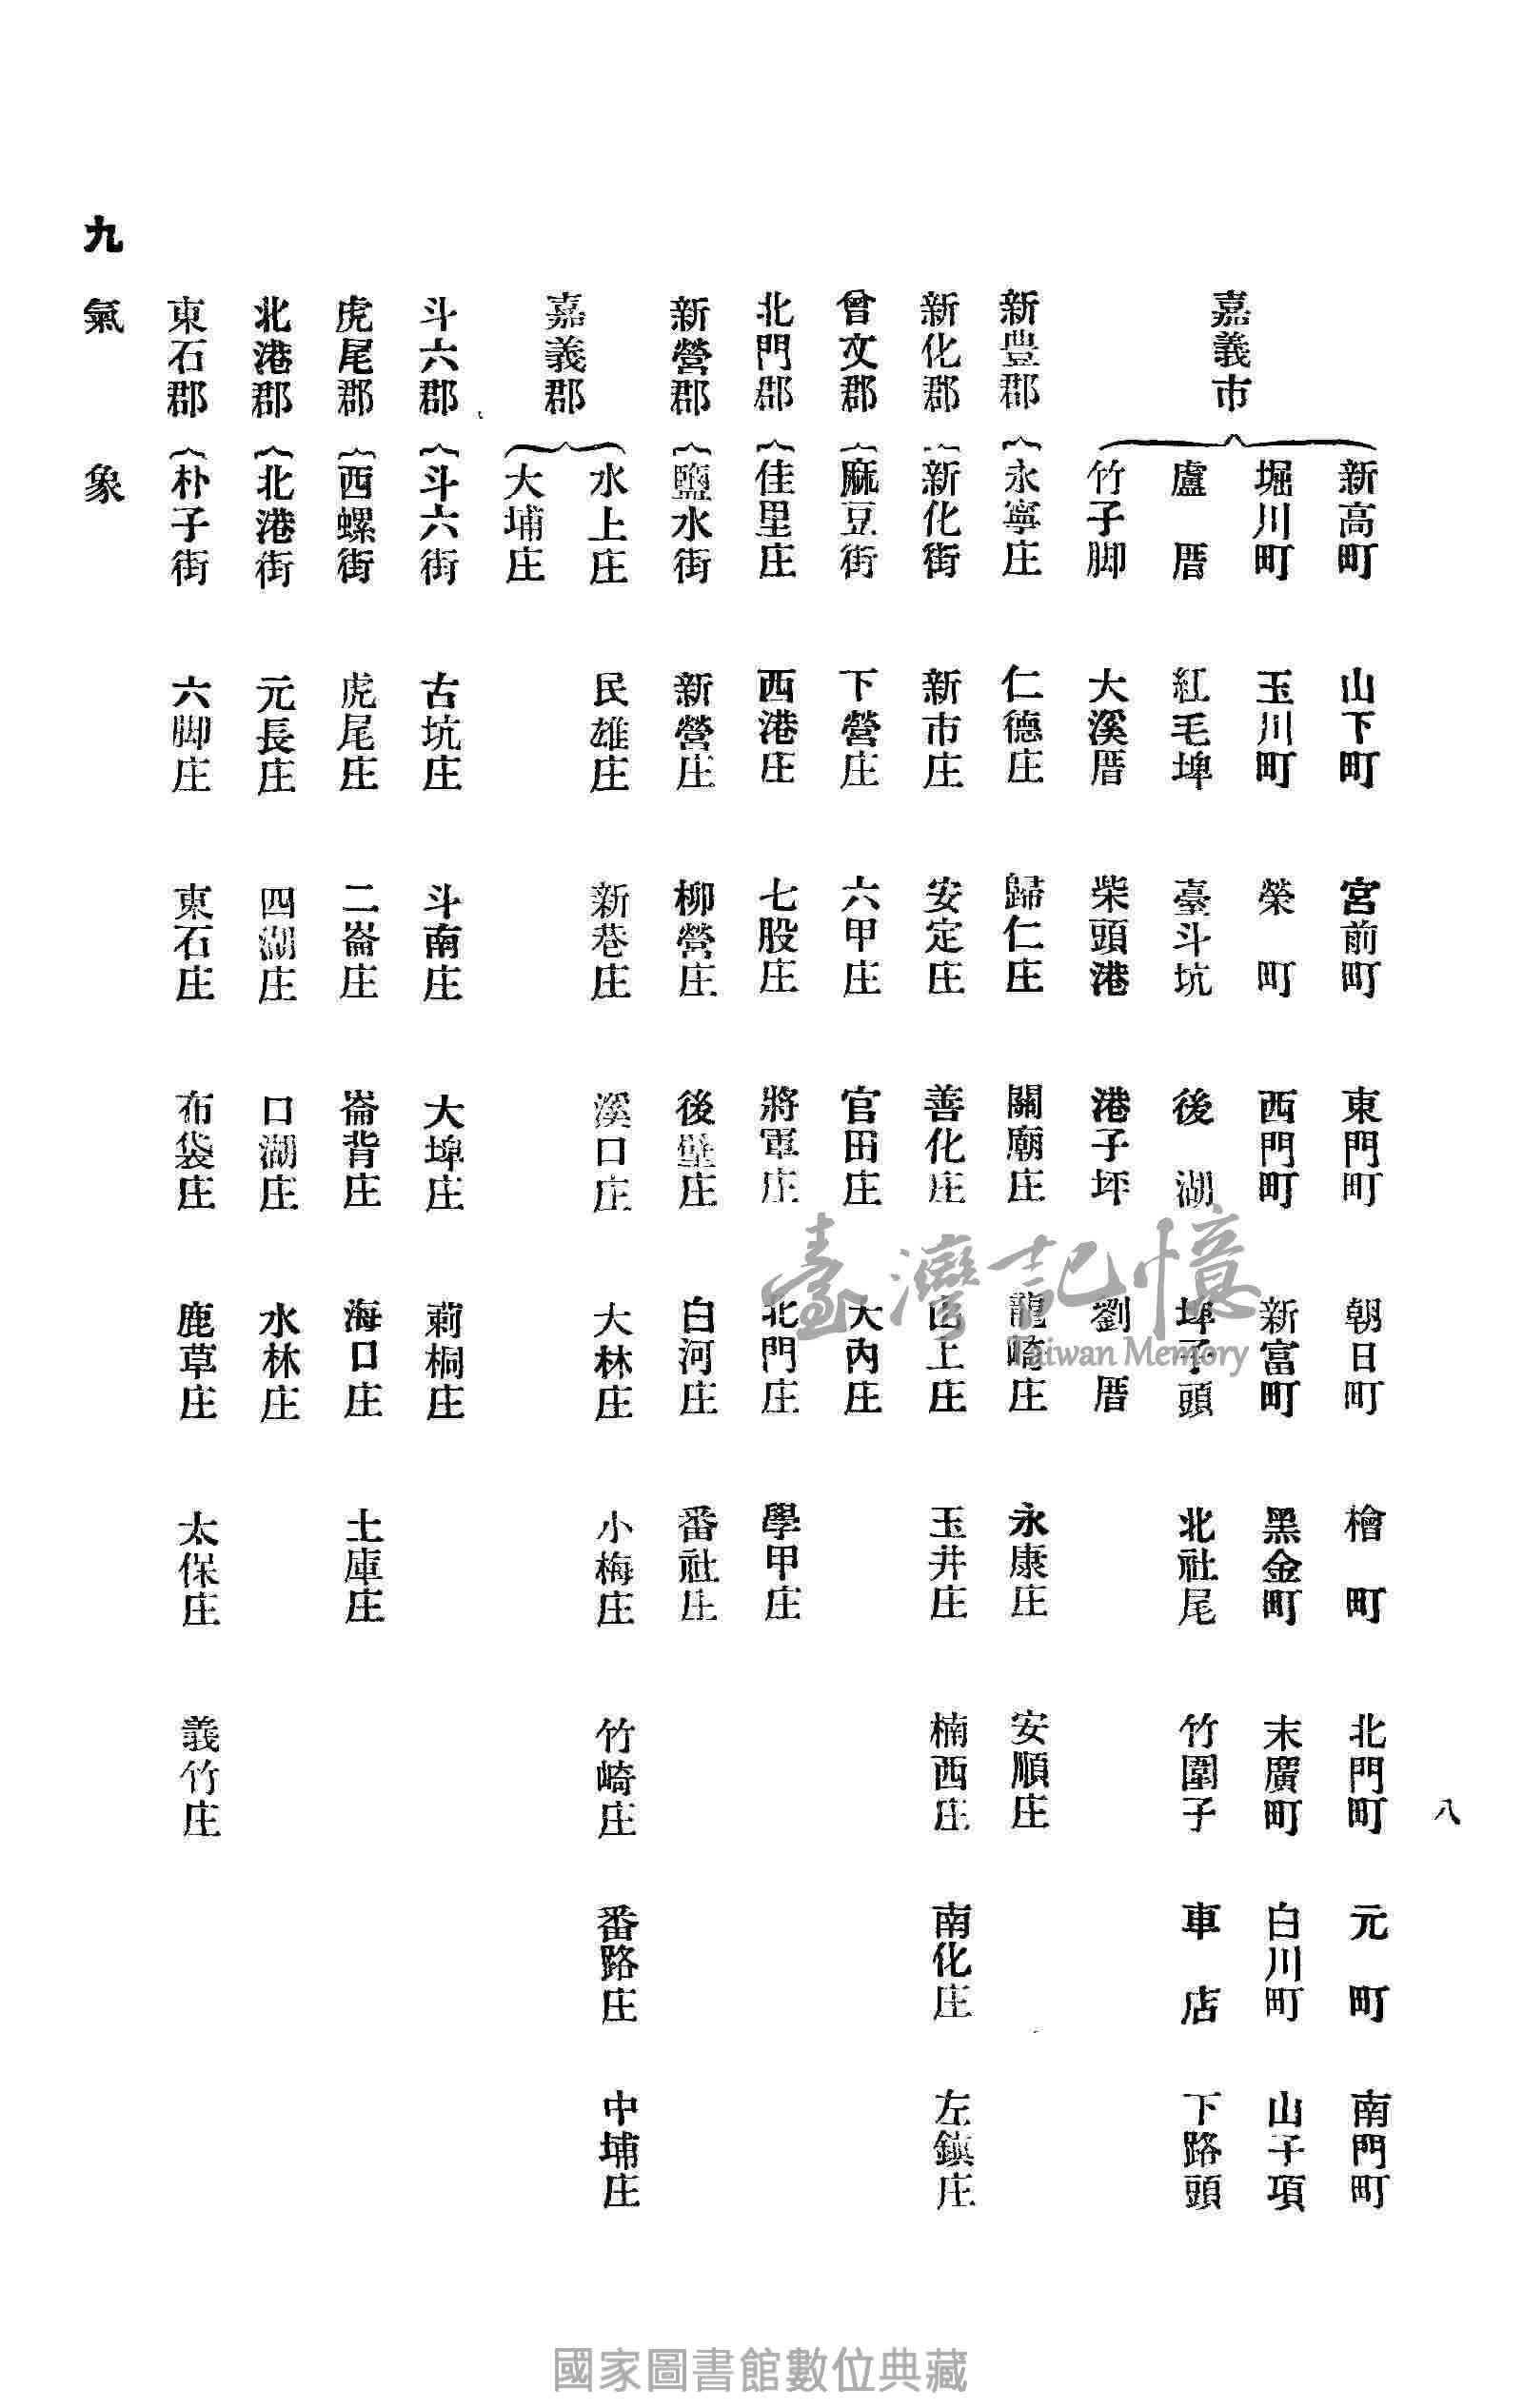 八
嘉義市
新高町 山下町 宮前町 東門町 朝日町 檜町 北門町 元町 南門町
堀川町 玉川町 榮町 西門町 新富町 黑金町 末廣町 白川町 山子項
盧厝 紅毛埤 臺斗坑 後湖 埤子頭 北社尾 竹圍子 車店 下路頭
竹子脚 大溪厝 柴頭港 港子坪 劉厝
新豊郡 永寧庄 仁德庄 歸仁庄 關廟庄 龍崎庄 永康庄 安順庄
新化郡 新化街 新市庄 安定庄 善化庄 山上庄 玉井庄 楠西庄 南化庄 左鎮庄
曾文郡 麻豆街 下營庄 六甲庄 官田庄 大內庄
北門郡 佳里庄 西港庄 七股庄 將軍庄 北門庄 學甲庄
新營郡 鹽水街 新營庄 柳營庄 後壁庄 白河庄 番社庄
嘉義郡
水上庄 民雄庄 新巷庄 溪口庄 大林庄 小梅庄 竹崎庄 番路庄 中埔庄
大埔庄
斗六郡 斗六街 古坑庄 斗南庄 大埤庄 莿桐庄
虎尾郡 西螺街 虎尾庄 二崙庄 崙背庄 海口庄 土庫庄
北港郡 北港街 元長庄 四湖庄 口湖庄 水林庄
東石郡 朴子街 六脚庄 東石庄 布袋庄 鹿草庄 太保庄 義竹庄
九 氣象
臺灣記憶
Taiwan Memory
國家圖書館數位典藏